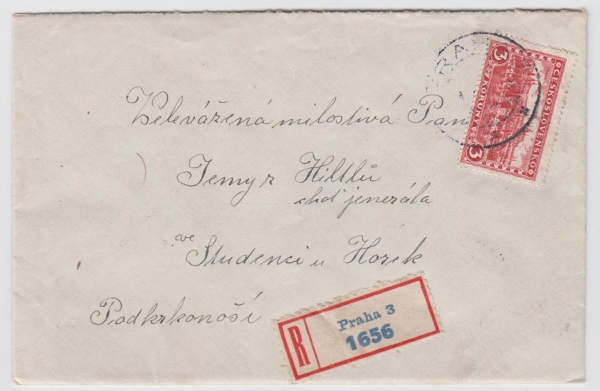 Velevážená milostivá Paní
Jemyr Hiltlů
chď jenerála
ve
Studenci u Horek
Podkrkonoší
R
Praha 3
1656
ČESKOSLOVENSKO
3 KORUNY 3
PRAHA